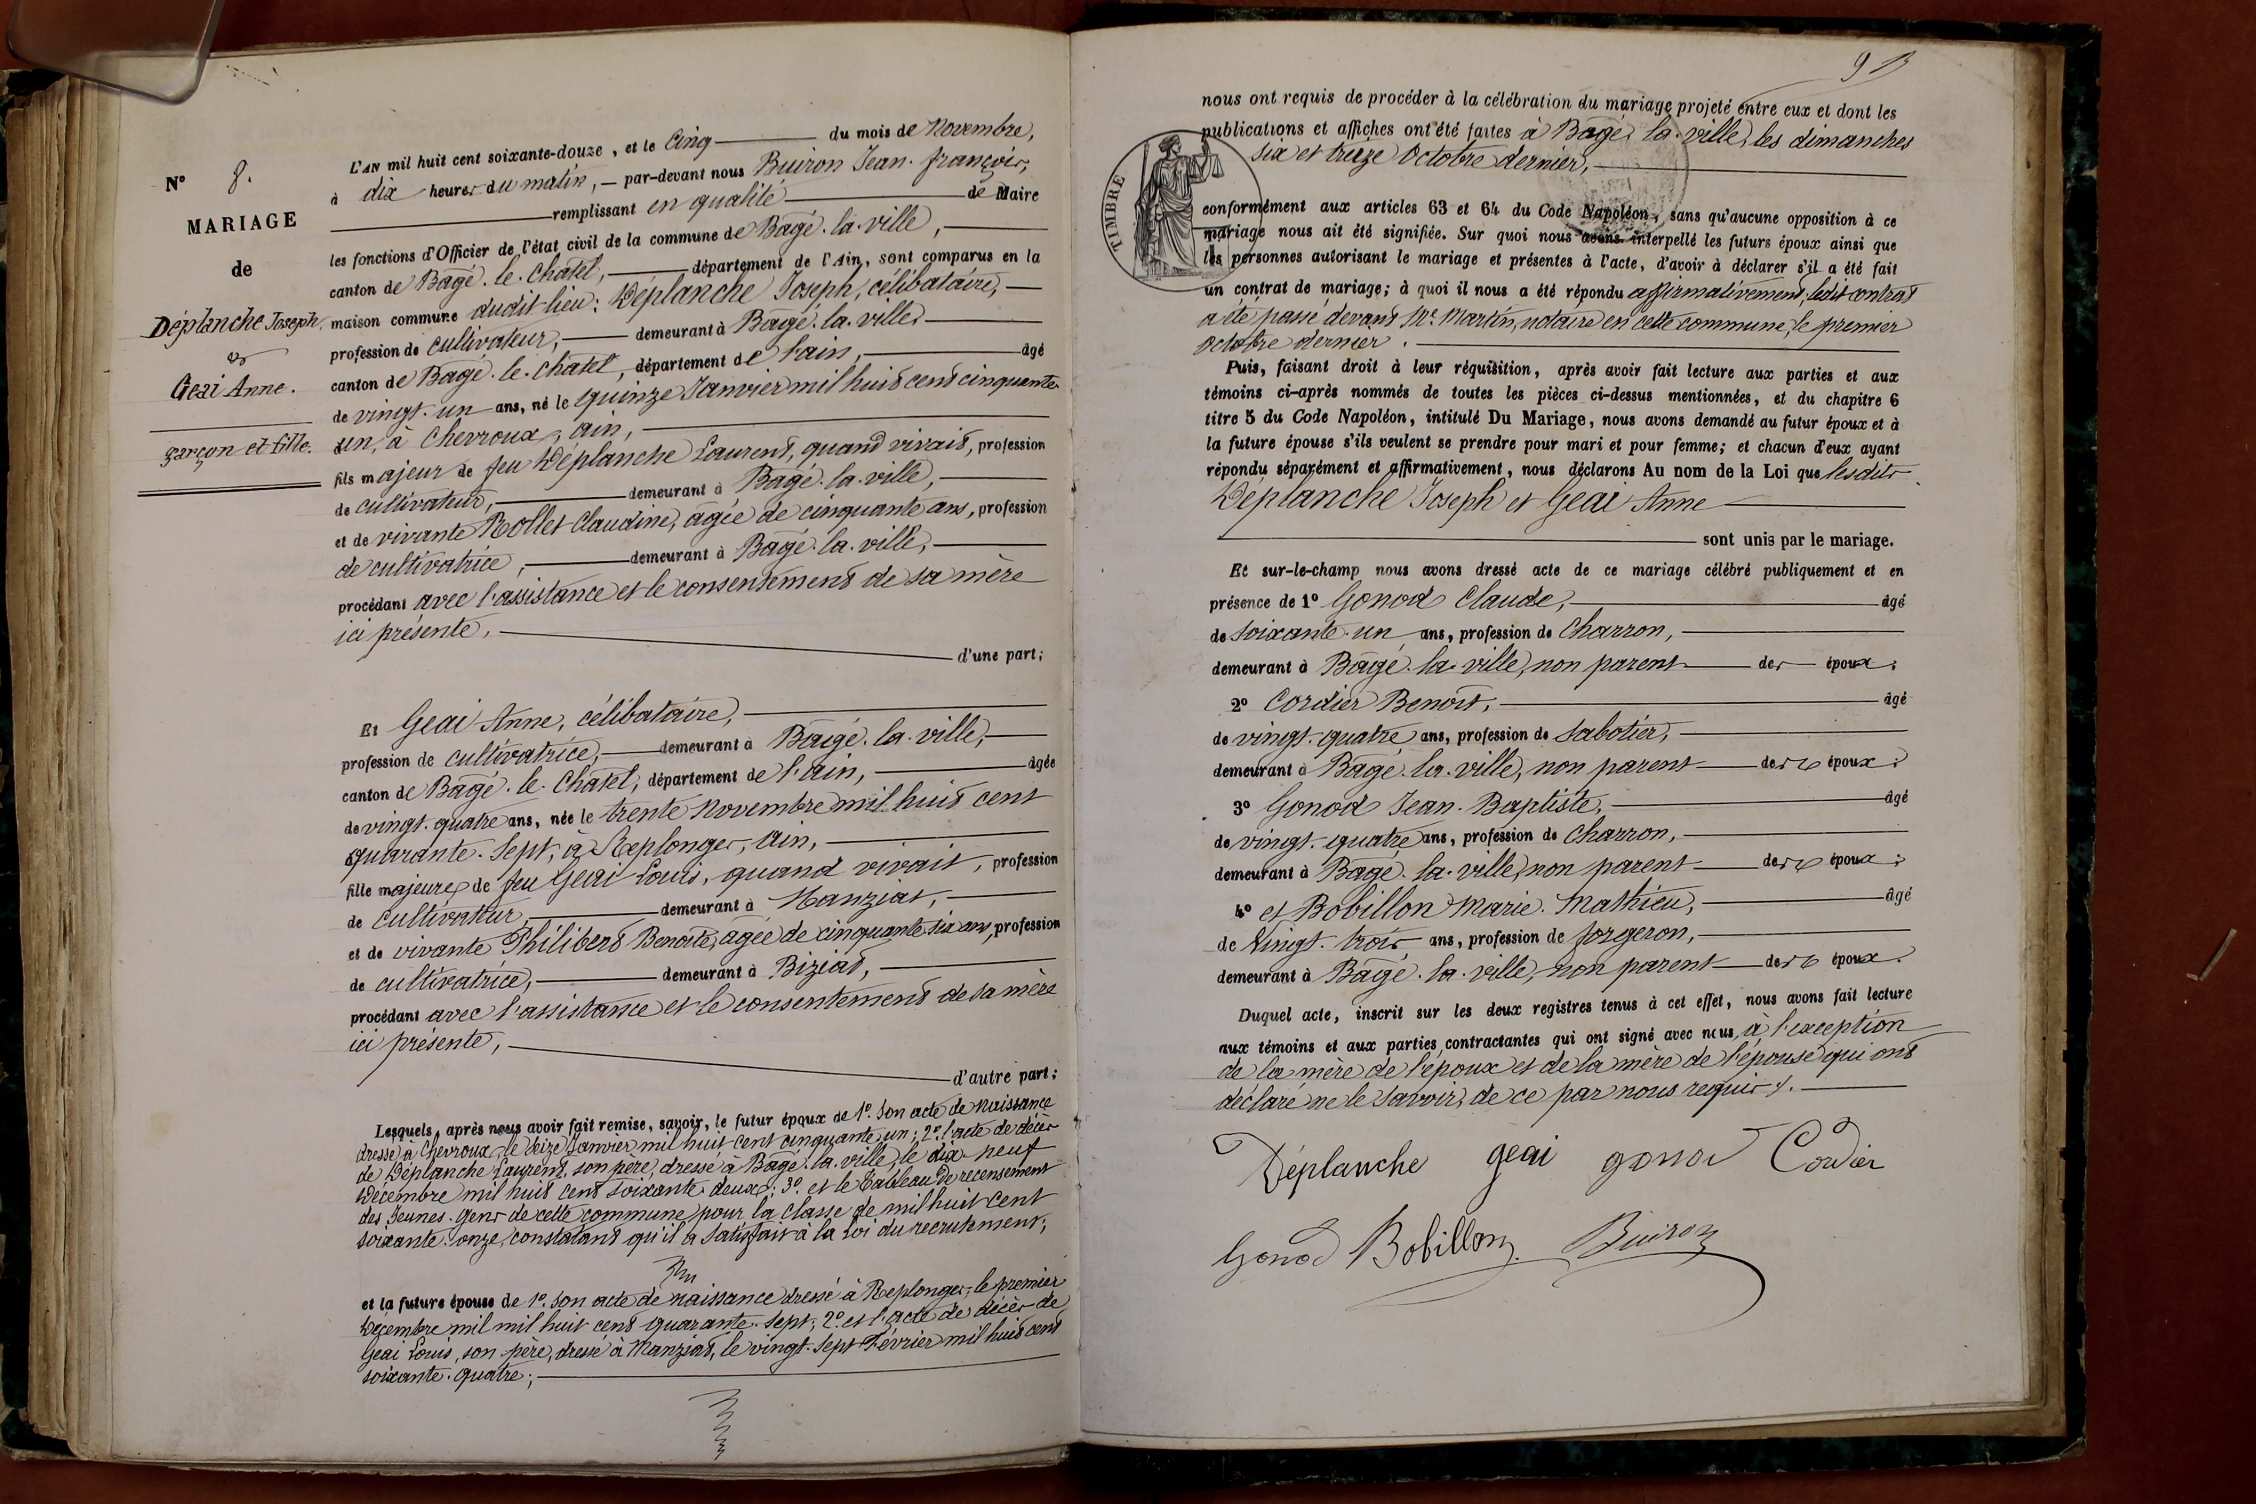 N° 8.
MARIAGE
de
Déplanche Joseph
et
Geai Anne.
garçon et fille.
L'AN mil huit cent soixante-douze, et le Cinq du mois de Novembre,
à dix heures du matin, — par-devant nous Buiron Jean-françois,
remplissant en qualité de Maire
les fonctions d'Officier de l'état civil de la commune de Bagé-la-ville,
canton de Bagé-le-Chatel, département de l'Ain, sont comparus en la
maison commune dudit lieu: Déplanche Joseph, célibataire, —
profession de cultivateur, — demeurant à Bagé-la-ville,
canton de Bagé-le-Chatel, département de l'ain, âgé
de vingt-un ans, né le quinze Janvier mil huit cent cinquante
un, à Chevroux, ain,
fils majeur de feu Déplanche Laurent, quand vivait, profession
de cultivateur, demeurant à Bagé-la-ville,
et de vivante Rollet Claudine, agée de cinquante ans, profession
de cultivatrice, demeurant à Bagé-la-ville,
procédant avec l'assistance et le consentement de sa mère
ici présente,
d'une part;
Et Geai Anne, célibataire,
profession de cultivatrice, demeurant à Bagé-la-ville,
canton de Bagé-le-Chatel, département de l'ain, âgée
de vingt-quatre ans, née le trente Novembre mil huit cent
quarante-sept, à Replonges, ain,
fille majeure de feu Geai Louis, quand vivait, profession
de cultivateur, demeurant à Manziat,
et de vivante Philibert Benoite, agée de cinquante six ans, profession
de cultivatrice, demeurant à Biziat,
procédant avec l'assistance et le consentement de sa mère
ici présente,
d'autre part;
Lesquels, après nous avoir fait remise, savoir, le futur époux de 1° Son acte de naissance
dressé à Chevroux, le seize Janvier mil huit cent cinquante un; 2° l'acte de décès
de Déplanche Laurent, son père, dressé à Bagé-la-ville, le dix neuf
Décembre mil huit cent soixante deux; 3° et le Tableau de recensement
des Jeunes-gens de cette commune pour la classe de mil huit cent
soixante-onze, constatant qu'il a satisfait à la Loi du recrutement;
et la future épouse de 1° Son acte de naissance dressé à Replonges, le premier
Décembre mil mil huit cent quarante-sept; 2° et l'acte de décès de
Geai Louis, son père, dressé à Manziat, le vingt-sept Février mil huit cent
soixante-quatre;
9
TIMBRE
nous ont requis de procéder à la célébration du mariage projeté entre eux et dont les
publications et affiches ont été faites à Bagé-la-ville, les dimanches
six et treize Octobre dernier,
conformément aux articles 63 et 64 du Code Napoléon, sans qu'aucune opposition à ce
mariage nous ait été signifiée. Sur quoi nous avons interpellé les futurs époux ainsi que
les personnes autorisant le mariage et présentes à l'acte, d'avoir à déclarer s'il a été fait
un contrat de mariage; à quoi il nous a été répondu affirmativement; ledit contrat
a été passé devant Me Martin, notaire en cette commune, le premier
Octobre dernier.
Puis, faisant droit à leur réquisition, après avoir fait lecture aux parties et aux
témoins ci-après nommés de toutes les pièces ci-dessus mentionnées, et du chapitre 6
titre 5 du Code Napoléon, intitulé Du Mariage, nous avons demandé au futur époux et à
la future épouse s'ils veulent se prendre pour mari et pour femme; et chacun d'eux ayant
répondu séparément et affirmativement, nous déclarons Au nom de la Loi que lesdits
Déplanche Joseph et Geai Anne
sont unis par le mariage.
Et sur-le-champ nous avons dressé acte de ce mariage célébré publiquement et en
présence de 1° Gonod Claude, âgé
de soixante-un ans, profession de Charron,
demeurant à Bagé-la-ville, non parent des époux;
2° Cordier Benoît, âgé
de vingt-quatre ans, profession de Sabotier,
demeurant à Bagé-la-ville, non parent des époux;
3° Gonod Jean-Baptiste, âgé
de vingt-quatre ans, profession de Charron,
demeurant à Bagé-la-ville, non parent des époux;
4° et Bobillon Marie-Mathieu, âgé
de Vingt-trois ans, profession de forgeron,
demeurant à Bagé-la-ville, non parent des époux.
Duquel acte, inscrit sur les deux registres tenus à cet effet, nous avons fait lecture
aux témoins et aux parties contractantes qui ont signé avec nous, à l'exception
de la mère de l'époux et de la mère de l'épouse qui ont
déclaré ne le savoir, de ce par nous requis.
Déplanche geai gonod Cordier
Gonod Bobillon Buiron